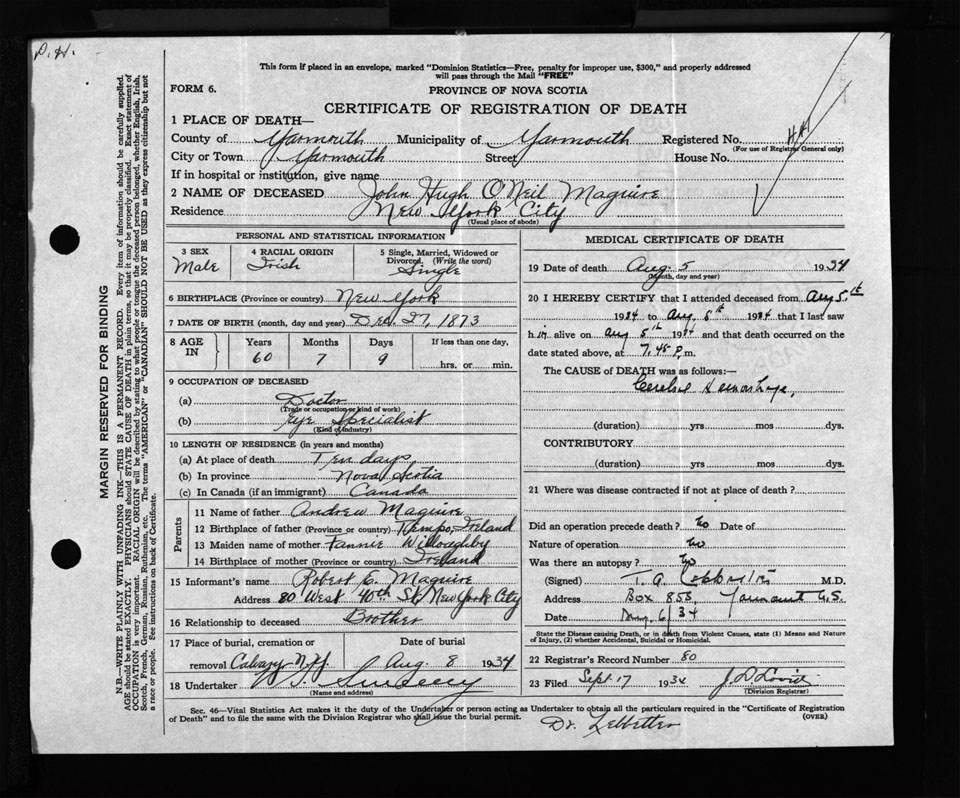 P. H.
This form if placed in an envelope, marked "Dominion Statistics—Free, penalty for improper use, $300," and properly addressed
will pass through the Mail "FREE"
FORM 6.
PROVINCE OF NOVA SCOTIA
CERTIFICATE OF REGISTRATION OF DEATH
1 PLACE OF DEATH—
County of Yarmouth Municipality of Yarmouth Registered No.
(For use of Registrar General only)
City or Town Yarmouth Street House No.
If in hospital or institution, give name
2 NAME OF DECEASED John Hugh O'Neil Maguire
Residence New York City
(Usual place of abode)
PERSONAL AND STATISTICAL INFORMATION
3 SEX Male
4 RACIAL ORIGIN Irish
5 Single, Married, Widowed or Divorced. (Write the word) Single
6 BIRTHPLACE (Province or country) New York
7 DATE OF BIRTH (month, day and year) Dec. 27, 1873
8 AGE IN Years Months Days If less than one day,
60 7 9 hrs. or min.
9 OCCUPATION OF DECEASED
(a) Doctor
(Trade or occupation or kind of work)
(b) Eye Specialist
(Kind of industry)
10 LENGTH OF RESIDENCE (in years and months)
(a) At place of death Ten days
(b) In province Nova Scotia
(c) In Canada (if an immigrant) Canada
Parents
11 Name of father Andrew Maguire
12 Birthplace of father (Province or country) Tempo, Ireland
13 Maiden name of mother Fannie Willoughby
14 Birthplace of mother (Province or country) Ireland
15 Informant's name Robert E. Maguire
Address 80 West 40th St, New York City
16 Relationship to deceased Brother
17 Place of burial, cremation or removal Calvary N.Y. Date of burial Aug. 8 1934
18 Undertaker
(Name and address)
MEDICAL CERTIFICATE OF DEATH
19 Date of death Aug. 5 1934
(Month, day and year)
20 I HEREBY CERTIFY that I attended deceased from Aug 5th
1934 to Aug. 5th 1934 that I last saw
h im alive on Aug 5th 1934 and that death occurred on
date stated above, at 7.45 P.m.
The CAUSE of DEATH was as follows:—
Cerebral Hemorrhage,
(duration) yrs mos dys.
CONTRIBUTORY
(duration) yrs mos dys.
21 Where was disease contracted if not at place of death?
Did an operation precede death? no Date of
Nature of operation no
Was there an autopsy? no
(Signed) T. A. M.D.
Address Box 855, Yarmouth N.S.
Date Aug 6/34
State the Disease causing Death, or in death from Violent Causes, state (1) Means and Nature
of Injury, (2) whether Accidental, Suicidal or Homicidal.
22 Registrar's Record Number 80
23 Filed Sept. 17 1934
(Division Registrar)
Sec. 46—Vital Statistics Act makes it the duty of the Undertaker or person acting as Undertaker to obtain all the particulars required in the "Certificate of Registration
of Death" and to file the same with the Division Registrar who shall issue the burial permit.
(OVER)
Dr. Lebbetter
MARGIN RESERVED FOR BINDING
N.B.—WRITE PLAINLY WITH UNFADING INK—THIS IS A PERMANENT RECORD. Every item of information should be carefully supplied.
AGE should be stated EXACTLY. PHYSICIANS should STATE CAUSE OF DEATH in plain terms, so that it may be properly classified. Exact statement of
OCCUPATION is very important. RACIAL ORIGIN will be described by stating to what people or tongue the deceased person belonged, whether English, Irish,
Scotch, French, German, Russian, Ruthenian, etc. The terms "AMERICAN" or "CANADIAN" SHOULD NOT BE USED as they express citizenship but not
a race or people. See instructions on back of Certificate.